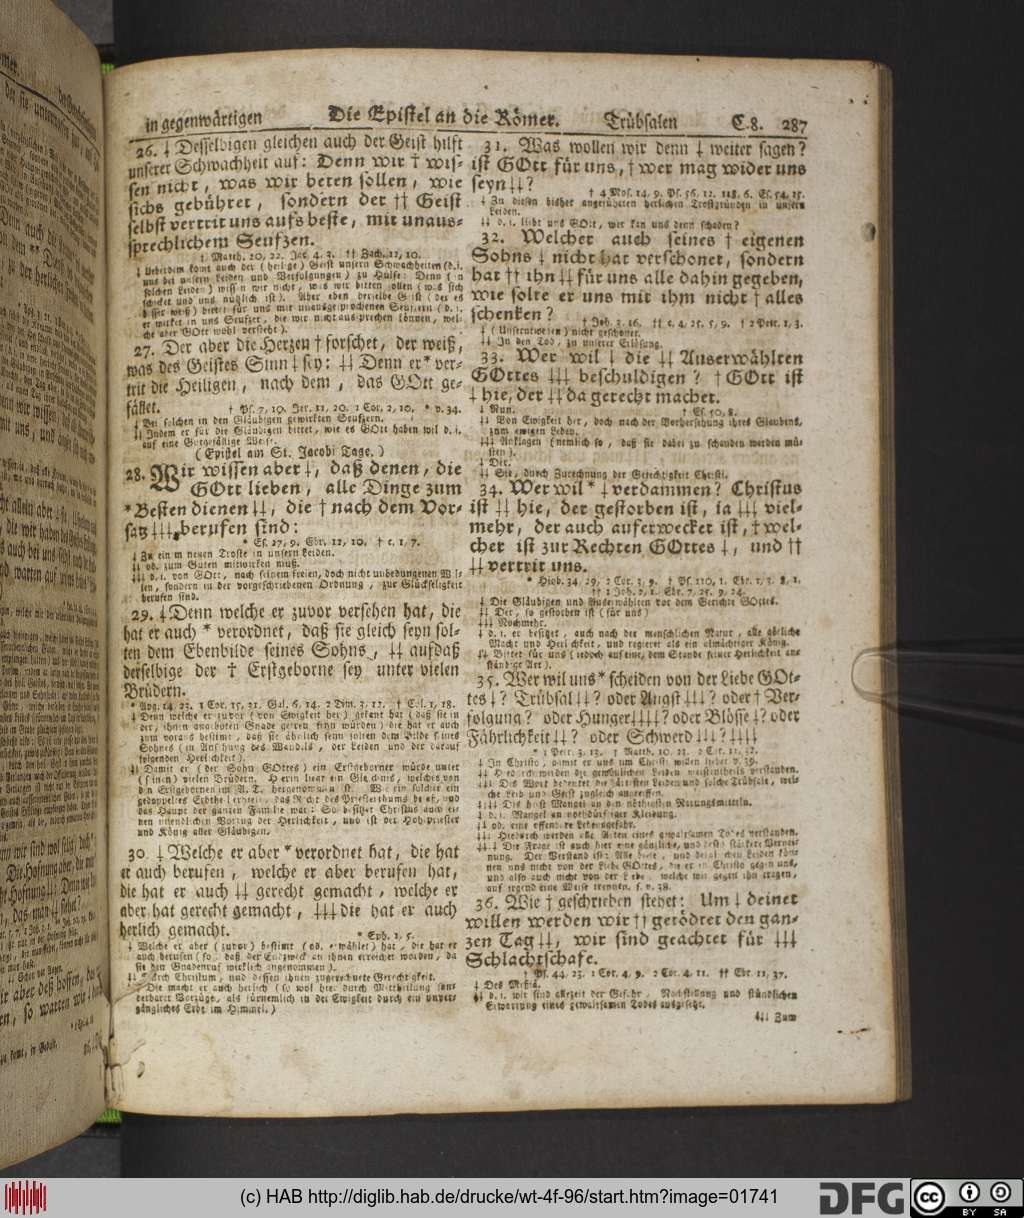 in gegenwärtigen Die Epistel an die Römer. Trübsalen C. 8. 287
26. ⸸ Desselbigen gleichen auch der Geist hilft
unserer Schwachheit auf: Denn wir † wis-
sen nicht, was wir beten sollen, wie
sichs gebühret, sondern der †† Geist
selbst vertrit uns aufs beste, mit unaus-
sprechlichem Seufzen.
† Matth. 20, 22. Jac. 4, 3. †† Zach. 12, 10.
⸸ Ueberdem komt auch der (heilige) Geist unsern Schwachheiten (d. i.
uns bei unsern Leiden und Verfolgungen) zu Hülfe: Denn (in
solchen Leiden) wissen wir nicht, was wir bitten sollen (was sich
schicket und uns nützlich ist). Aber eben derselbe Geist (der es
besser weiß) bittet für uns mit unausgesprochenen Seufzern (d. i.
er wirket in uns Seufzer, die wir nicht aussprechen können, wel-
che aber GOtt wohl versteht).
27. Der aber die Herzen † forschet, der weiß,
was des Geistes Sinn ⸸ sey: ⸸⸸ Denn er * ver-
trit die Heiligen, nach dem, das GOtt ge-
fället.
† Ps. 7, 10. Jer. 11, 20. 1 Cor. 2, 10. * v. 34.
⸸ Bei solchen in den Gläubigen gewirkten Seufzern.
⸸⸸ Indem er für die Gläubigen bittet, wie es GOtt haben wil d. i.
auf eine Gottgefällige Weise.
(Epistel am St. Jacobi Tage.)
28. Wir wissen aber ⸸, daß denen, die
GOtt lieben, alle Dinge zum
* Besten dienen ⸸⸸, die † nach dem Vor-
satz ⸸⸸⸸ berufen sind:
* Es. 27, 9. Ebr. 12, 10. † c. 1, 7.
⸸ Zu einem neuen Troste in unsern Leiden.
⸸⸸ od. zum Guten mitwirken muß.
⸸⸸⸸ d. i. von GOtt, nach seinem freien, doch nicht unbedungenen Wil-
len, sondern in der vorgeschriebenen Ordnung, zur Glückseligkeit
berufen sind.
29. ⸸ Denn welche er zuvor versehen hat, die
hat er auch * verordnet, daß sie gleich seyn sol-
ten dem Ebenbilde seines Sohns, ⸸⸸ aufdaß
derselbige der † Erstgeborne sey unter vielen
Brüdern.
* Apg. 14, 23. 1 Cor. 15, 21. Gal. 6, 14. 2 Tim. 3, 12. † Col. 1, 18.
⸸ Denn welche er zuvor (von Ewigkeit her) gekant hat (daß sie in
der, ihnen angebotenen Gnade getreu seyn würden) die hat er auch
zum voraus bestimt, daß sie ähnlich seyn solten dem Bilde seines
Sohnes (in Ansehung des Wandels, der Leiden und der darauf
folgenden Herlichkeit).
⸸⸸ Damit er (der Sohn GOttes) ein Erstgeborner würde unter
(seinen) vielen Brüdern. Hierin liegt ein Gleichnis, welches von
den Erstgebornen im A. T. hergenommen ist. Wie ein solcher ein
gedoppeltes Erbtheil erhielt, das Recht des Priesterthums besaß, und
das Haupt der ganzen Familie war: So besitzet Christus auch ei-
nen unendlichen Vorzug der Herlichkeit, und ist der Hohepriester
und König aller Gläubigen.
30. ⸸ Welche er aber * verordnet hat, die hat
er auch berufen, welche er aber berufen hat,
die hat er auch ⸸⸸ gerecht gemacht, welche er
aber hat gerecht gemacht, ⸸⸸⸸ die hat er auch
herlich gemacht.
* Eph. 1, 5.
⸸ Welche er aber (zuvor) bestimt (od. erwählet) hat, die hat er
auch berufen (so, daß der Endzweck an ihnen erreichet worden, da
sie den Gnadenruf wirklich angenommen).
⸸⸸ Durch Christum, und dessen ihnen zugerechnete Gerechtigkeit.
Die macht er auch herlich (so wol hier durch Mittheilung son-
derbarer Vorzüge, als fürnemlich in der Ewigkeit durch ein unver-
gängliches Erbe im Himmel.)
31. Was wollen wir denn ⸸ weiter sagen?
ist GOtt für uns, † wer mag wider uns
seyn ⸸⸸?
† 4 Mos. 14, 9. Ps. 56, 12. 118, 6. Es. 54, 15.
⸸ Zu diesen bisher angeführten herlichen Trostgründen in unsern
Leiden.
⸸⸸ d. i. liebt uns GOtt, wer kan uns denn schaden?
32. Welcher auch seines † eigenen
Sohns ⸸ nicht hat verschonet, sondern
hat †† ihn ⸸⸸ für uns alle dahin gegeben,
wie solte er uns mit ihm nicht † alles
schenken?
† Joh. 3, 16. †† c. 4, 25. 5, 9. † 2 Petr. 1, 3.
⸸ (Unsertwegen) nicht geschonet.
⸸⸸ In den Tod, zu unserer Erlösung.
33. Wer wil ⸸ die ⸸⸸ Auserwählten
GOttes ⸸⸸⸸ beschuldigen? † GOtt ist
⸸ hie, der ⸸⸸ da gerecht machet.
† Es. 50, 8.
⸸ Nun.
⸸⸸ Von Ewigkeit her, doch nach der Vorhersehung ihres Glaubens,
zum ewigen Leben.
⸸⸸⸸ Anklagen (nemlich so, daß sie dabei zu schanden werden müs-
sten).
⸸ Der.
⸸⸸ Sie, durch Zurechnung der Gerechtigkeit Christi.
34. Wer wil * ⸸ verdammen? Christus
ist ⸸⸸ hie, der gestorben ist, ja ⸸⸸⸸ viel-
mehr, der auch auferwecket ist, † wel-
cher ist zur Rechten GOttes ⸸, und ††
⸸⸸ vertrit uns.
* Hiob. 34, 29. 2 Cor. 3, 9. † Ps. 110, 1. Ebr. 1, 3. 8, 1.
†† 1 Joh. 2, 1. Ebr. 7, 25. 9, 24.
⸸ Die Gläubigen und Auserwählten vor dem Gerichte GOttes.
⸸⸸ Der, so gestorben ist (für uns)
⸸⸸⸸ Nochmehr.
⸸ d. i. er besitzet, auch nach der menschlichen Natur, alle götliche
Macht und Herlichkeit, und regieret als ein almächtiger König.
⸸⸸ Bittet für uns (iedoch auf eine, dem Stande seiner Herlichkeit an-
ständige Art).
35. Wer wil uns * scheiden von der Liebe GOt-
tes ⸸? Trübsal ⸸⸸? oder Angst ⸸⸸⸸? oder † Ver-
folgung? oder Hunger ⸸⸸⸸⸸? oder Blösse ⸸? oder
Fährlichkeit ⸸⸸? oder Schwerd ⸸⸸⸸? ⸸⸸⸸⸸
* 1 Petr. 3, 13. † Matth. 10, 22. 2 Cor. 11, 32.
⸸ In Christo, womit er uns um Christi willen liebet v. 39.
⸸⸸ Hiedurch werden die gewöhnlichen Leiden meistentheils verstanden.
⸸⸸⸸ Dis Wort bedeutet die härtesten Leiden und solche Trübsal, wel-
che Leib und Geist zugleich angreiffen.
⸸⸸⸸⸸ Das heist Mangel an den nöthigsten Narungsmitteln.
⸸ d. i. Mangel an nothdürftiger Kleidung.
⸸⸸ od. eine offenbare Lebensgefahr.
⸸⸸⸸ Hiedurch werden alle Arten eines gewaltsamen Todes verstanden.
⸸⸸⸸⸸ Die Frage ist auch hier eine gänzliche, und desto stärkere Vernei-
nung. Der Verstand ist: Alle diese, und dergleichen Leiden kön-
nen uns nicht von der Liebe GOttes, die er in Christo gegen uns,
und also auch nicht von der Liebe, welche wir gegen ihn tragen,
auf irgend eine Weise trennen. s. v. 38.
36. Wie † geschrieben stehet: Um ⸸ deinet
willen werden wir †† getödtet den gan-
zen Tag ⸸⸸, wir sind geachtet für ⸸⸸⸸
Schlachtschafe.
† Ps. 44, 23. 1 Cor. 4, 9. 2 Cor. 4, 11. †† Ebr. 11, 37.
⸸ Des Meßiä.
⸸⸸ d. i. wir sind allezeit der Gefahr, Nachstellung und stündlichen
Erwartung eines gewaltsamen Todes ausgesetzt.
⸸⸸⸸ Zum
(c) HAB http://diglib.hab.de/drucke/wt-4f-96/start.htm?image=01741
DFG
cc BY SA